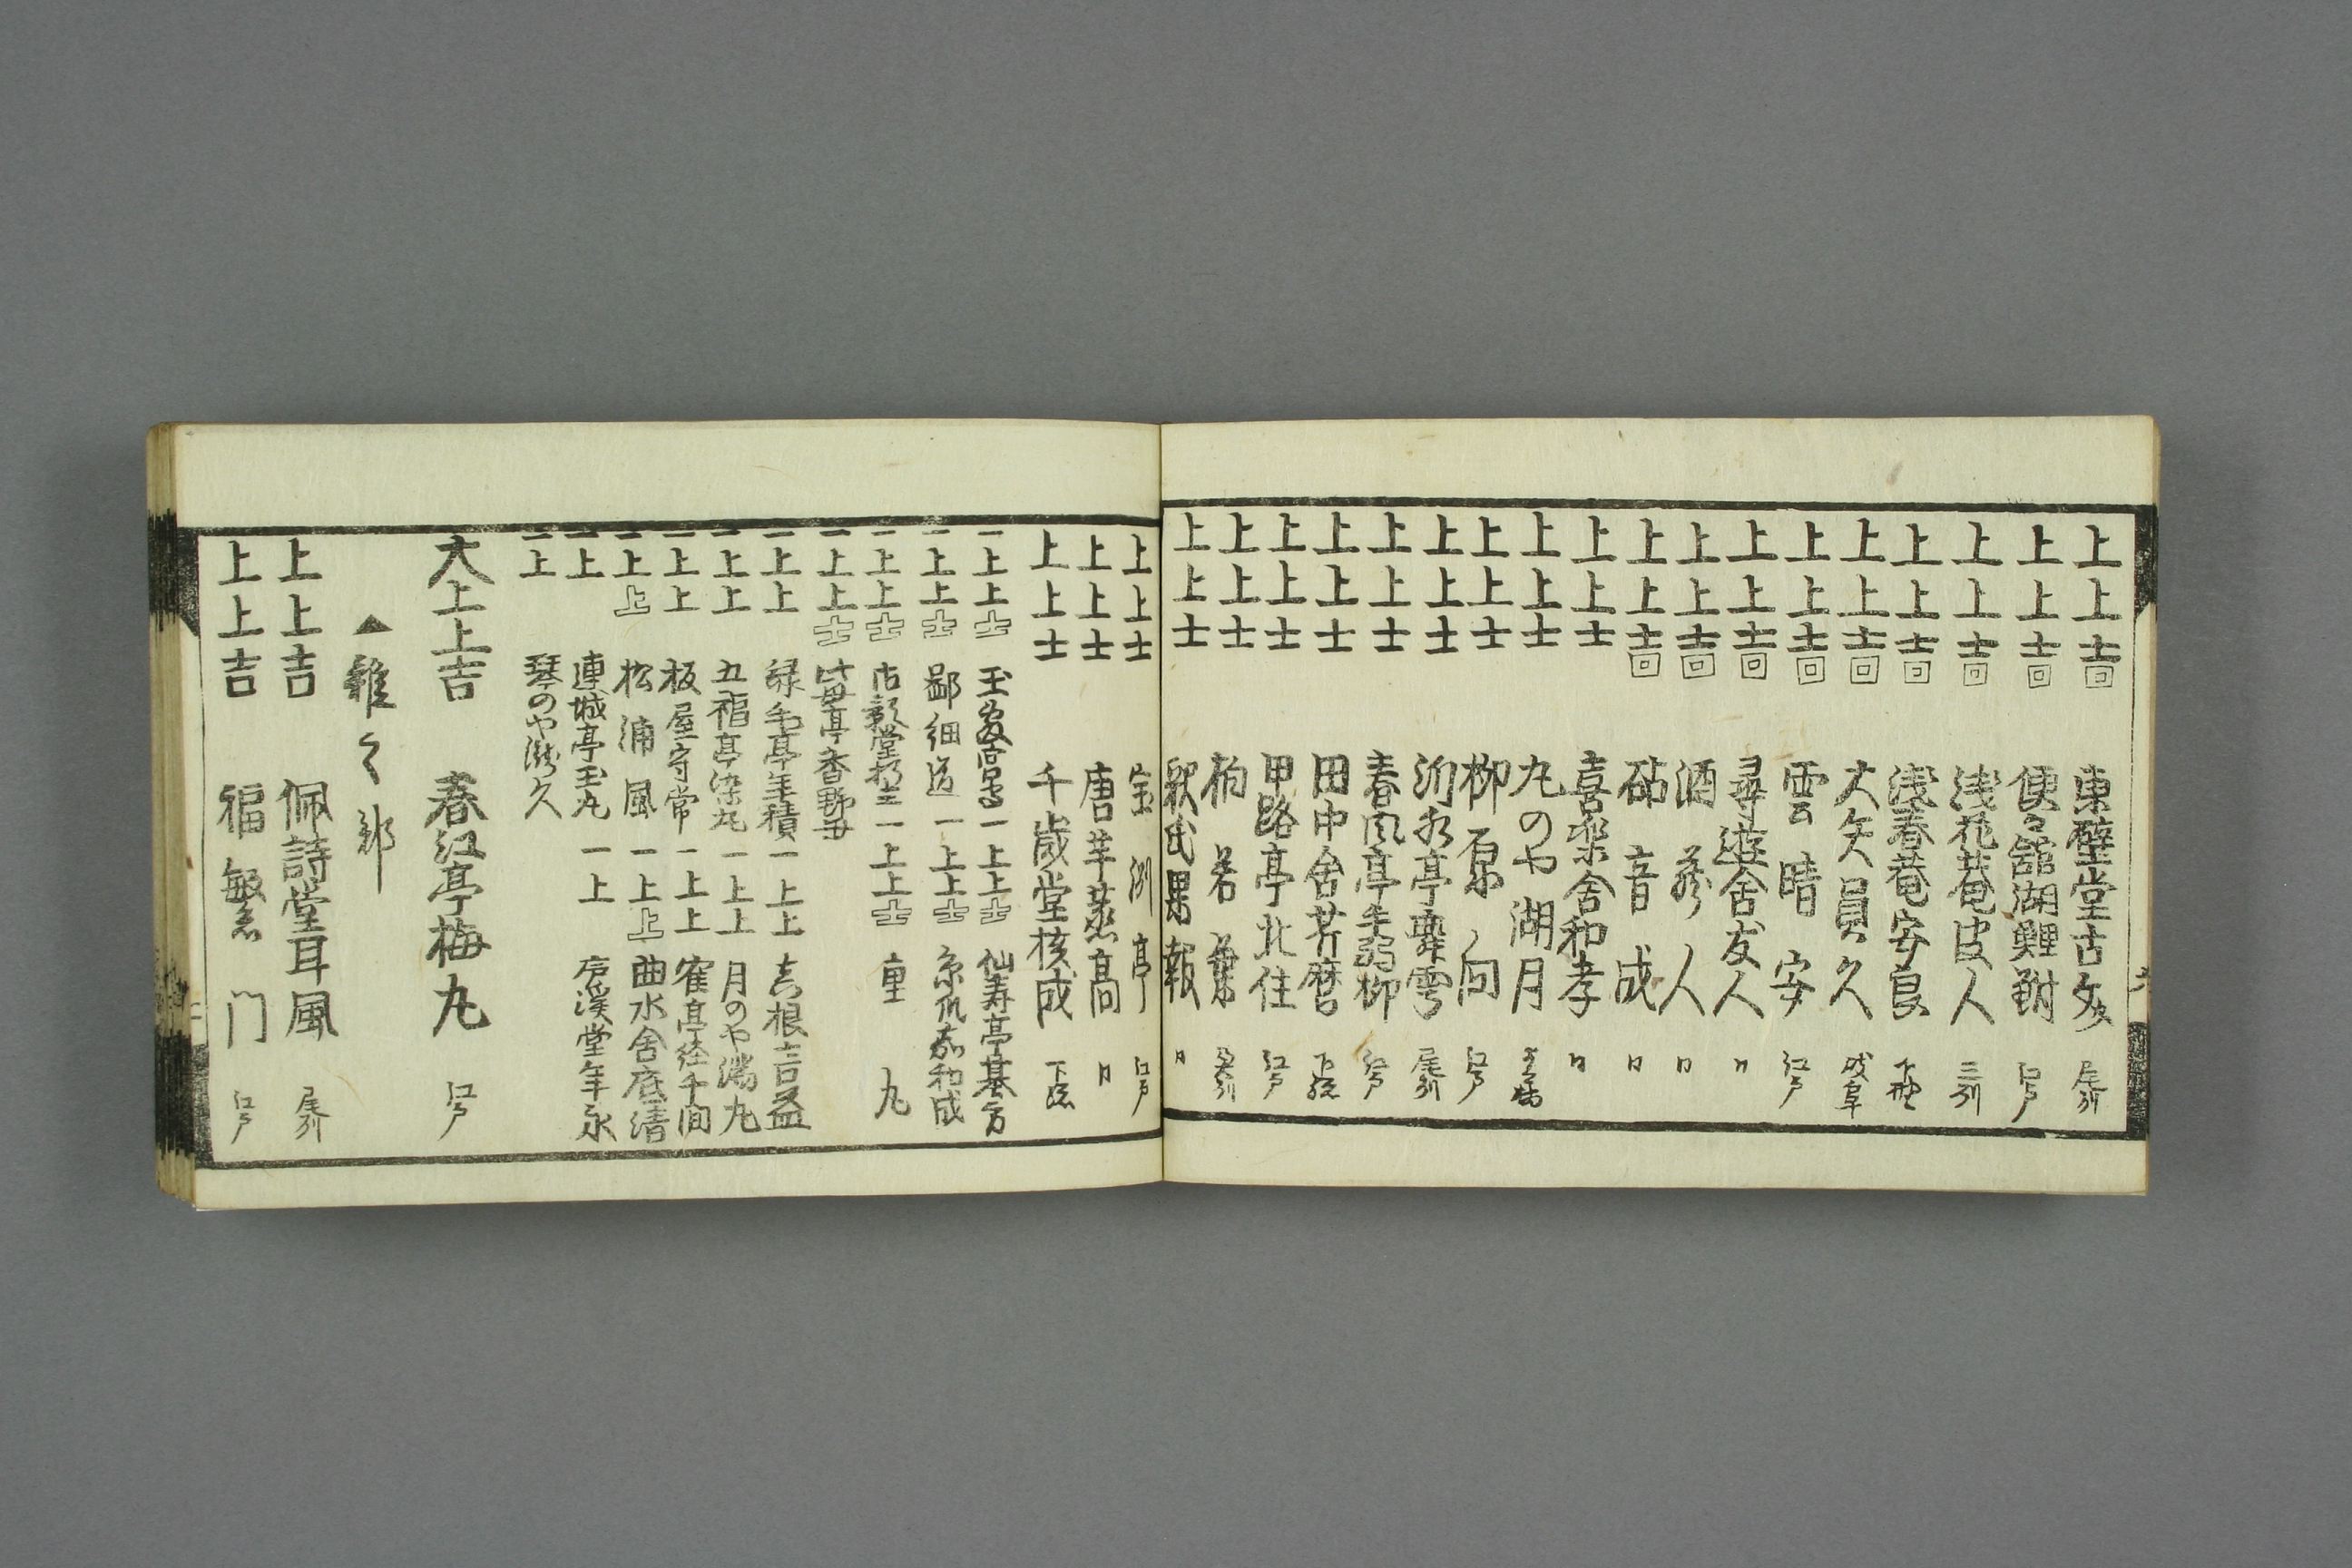 上上吉 東壁堂古文 尾州
上上吉 便々館湖鯉鮒 江戸
上上吉 浅花菴皮人 三州
上上吉 浅春菴安良 下野
上上吉 大矢員久 岐阜
上上吉 雲晴安 江戸
上上吉 尋遊舎友人 〃
上上吉 酒人 〃
上上吉 砧音成 〃
上上士 喜楽舎和孝 〃
上上士 丸のや湖月
上上士 柳原向 江戸
上上士 亭雲 尾州
上上士 春風亭手弱柳 江戸
上上士 田中舎芹麿 下総
上上士 甲路亭北住 江戸
上上士 柏若葉
上上士 歌成果報 〃
上上士 亭 江戸
上上士 唐芋蒸高 〃
上上士 千歳堂核成 下総
一上上士 玉 一上上士 仙寿亭基方
一上上士 鄙細道 一上上士 和成
一上上士 一上上士 重丸
一上上士 亭香野
一上上 緑毛亭年積 一上上 吉根言益
一上上 五福亭染丸 一上上 月のや満丸
一上上 板屋守常 一上上 亭千間
一上上 松浦風 一上上 曲水舎底清
一上 連城亭玉丸 一上 渓堂年永
一上 琴のや瀧久
大上上吉 春江亭梅丸 江戸
▲雑之部
上上吉 佩詩堂耳風 尾州
上上吉 福繁門 江戸